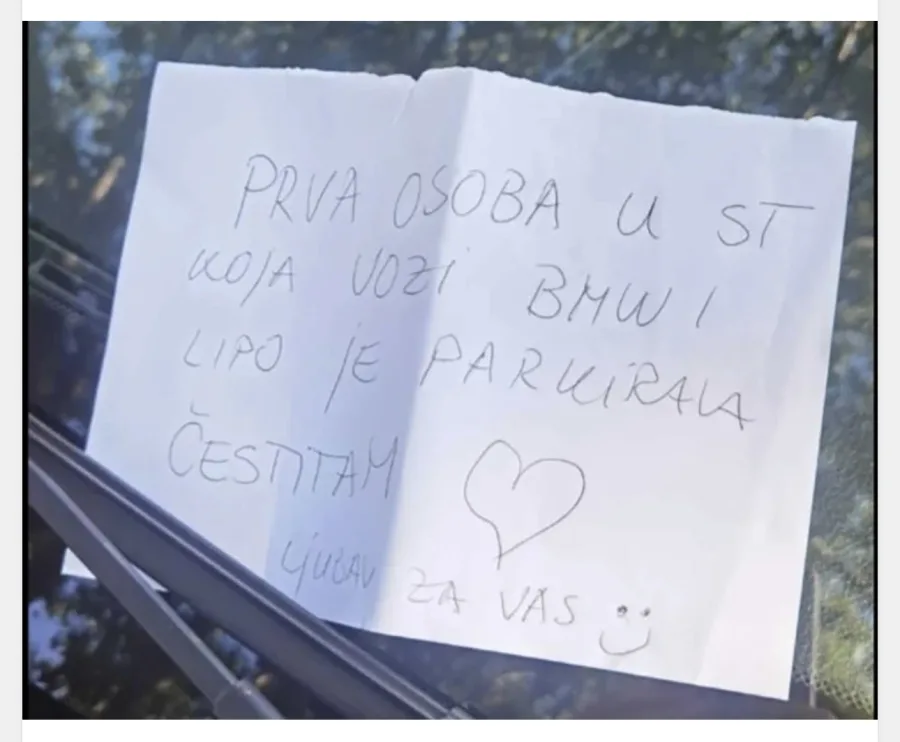 PRVA OSOBA U ST
KOJA VOZI BMW I
LIPO JE PARKIRALA
ČESTITAM
LJUBAV ZA VAS